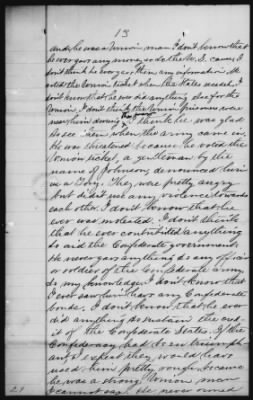 13
and he was a Union man. I don't know that
he ever gave any money to the U.S. cause, I
don't think he ever gave them any information. He
voted the Union ticket when the State seceded. I
don't know that he ever did anything else for the
Union. I don't think the Union prisoners were
near him during the war. I think he was glad
to see them when the army came in.
He was threatened because he voted the
Union ticket, a gentleman by the
name of Johnson, denounced him
as a Tory. They were pretty angry
but did not use any violence towards
each other. I don't know that he
ever was molested. I don't think
that he ever contributed anything
to aid the Confederate government.
He never gave anything to any officer
or soldier of the Confederate army
to my knowledge. I don't know that
I ever saw him have any Confederate
bonds, I don't know that he ever
did anything to sustain the cred-
it of the Confederate States. If the
Confederacy had been triumph-
ant I expect they would have
used him pretty rough because
he was a strong Union man
I cannot say. He never owned
29